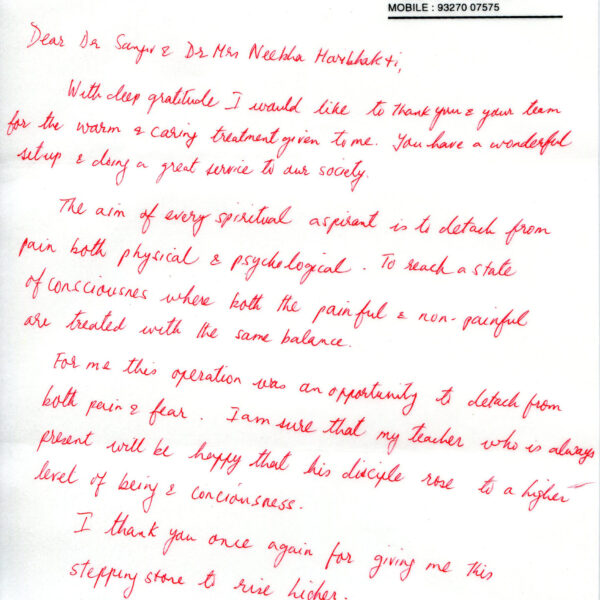 MOBILE : 93270 07575
Dear Dr Sanjiv & Dr Mrs Neebha Haribhakti,
With deep gratitude I would like to thank you & your team
for the warm & caring treatment given to me. You have a wonderful
setup & doing a great service to our society.
The aim of every spiritual aspirant is to detach from
pain both physical & psychological. To reach a state
of consciousnes where both the painful & non-painful
are treated with the same balance.
For me this operation was an opportunity to detach from
both pain & fear. I am sure that my teacher who is always
present will be happy that his disciple rose to a higher
level of being & conciousness.
I thank you once again for giving me this
stepping stone to rise higher.